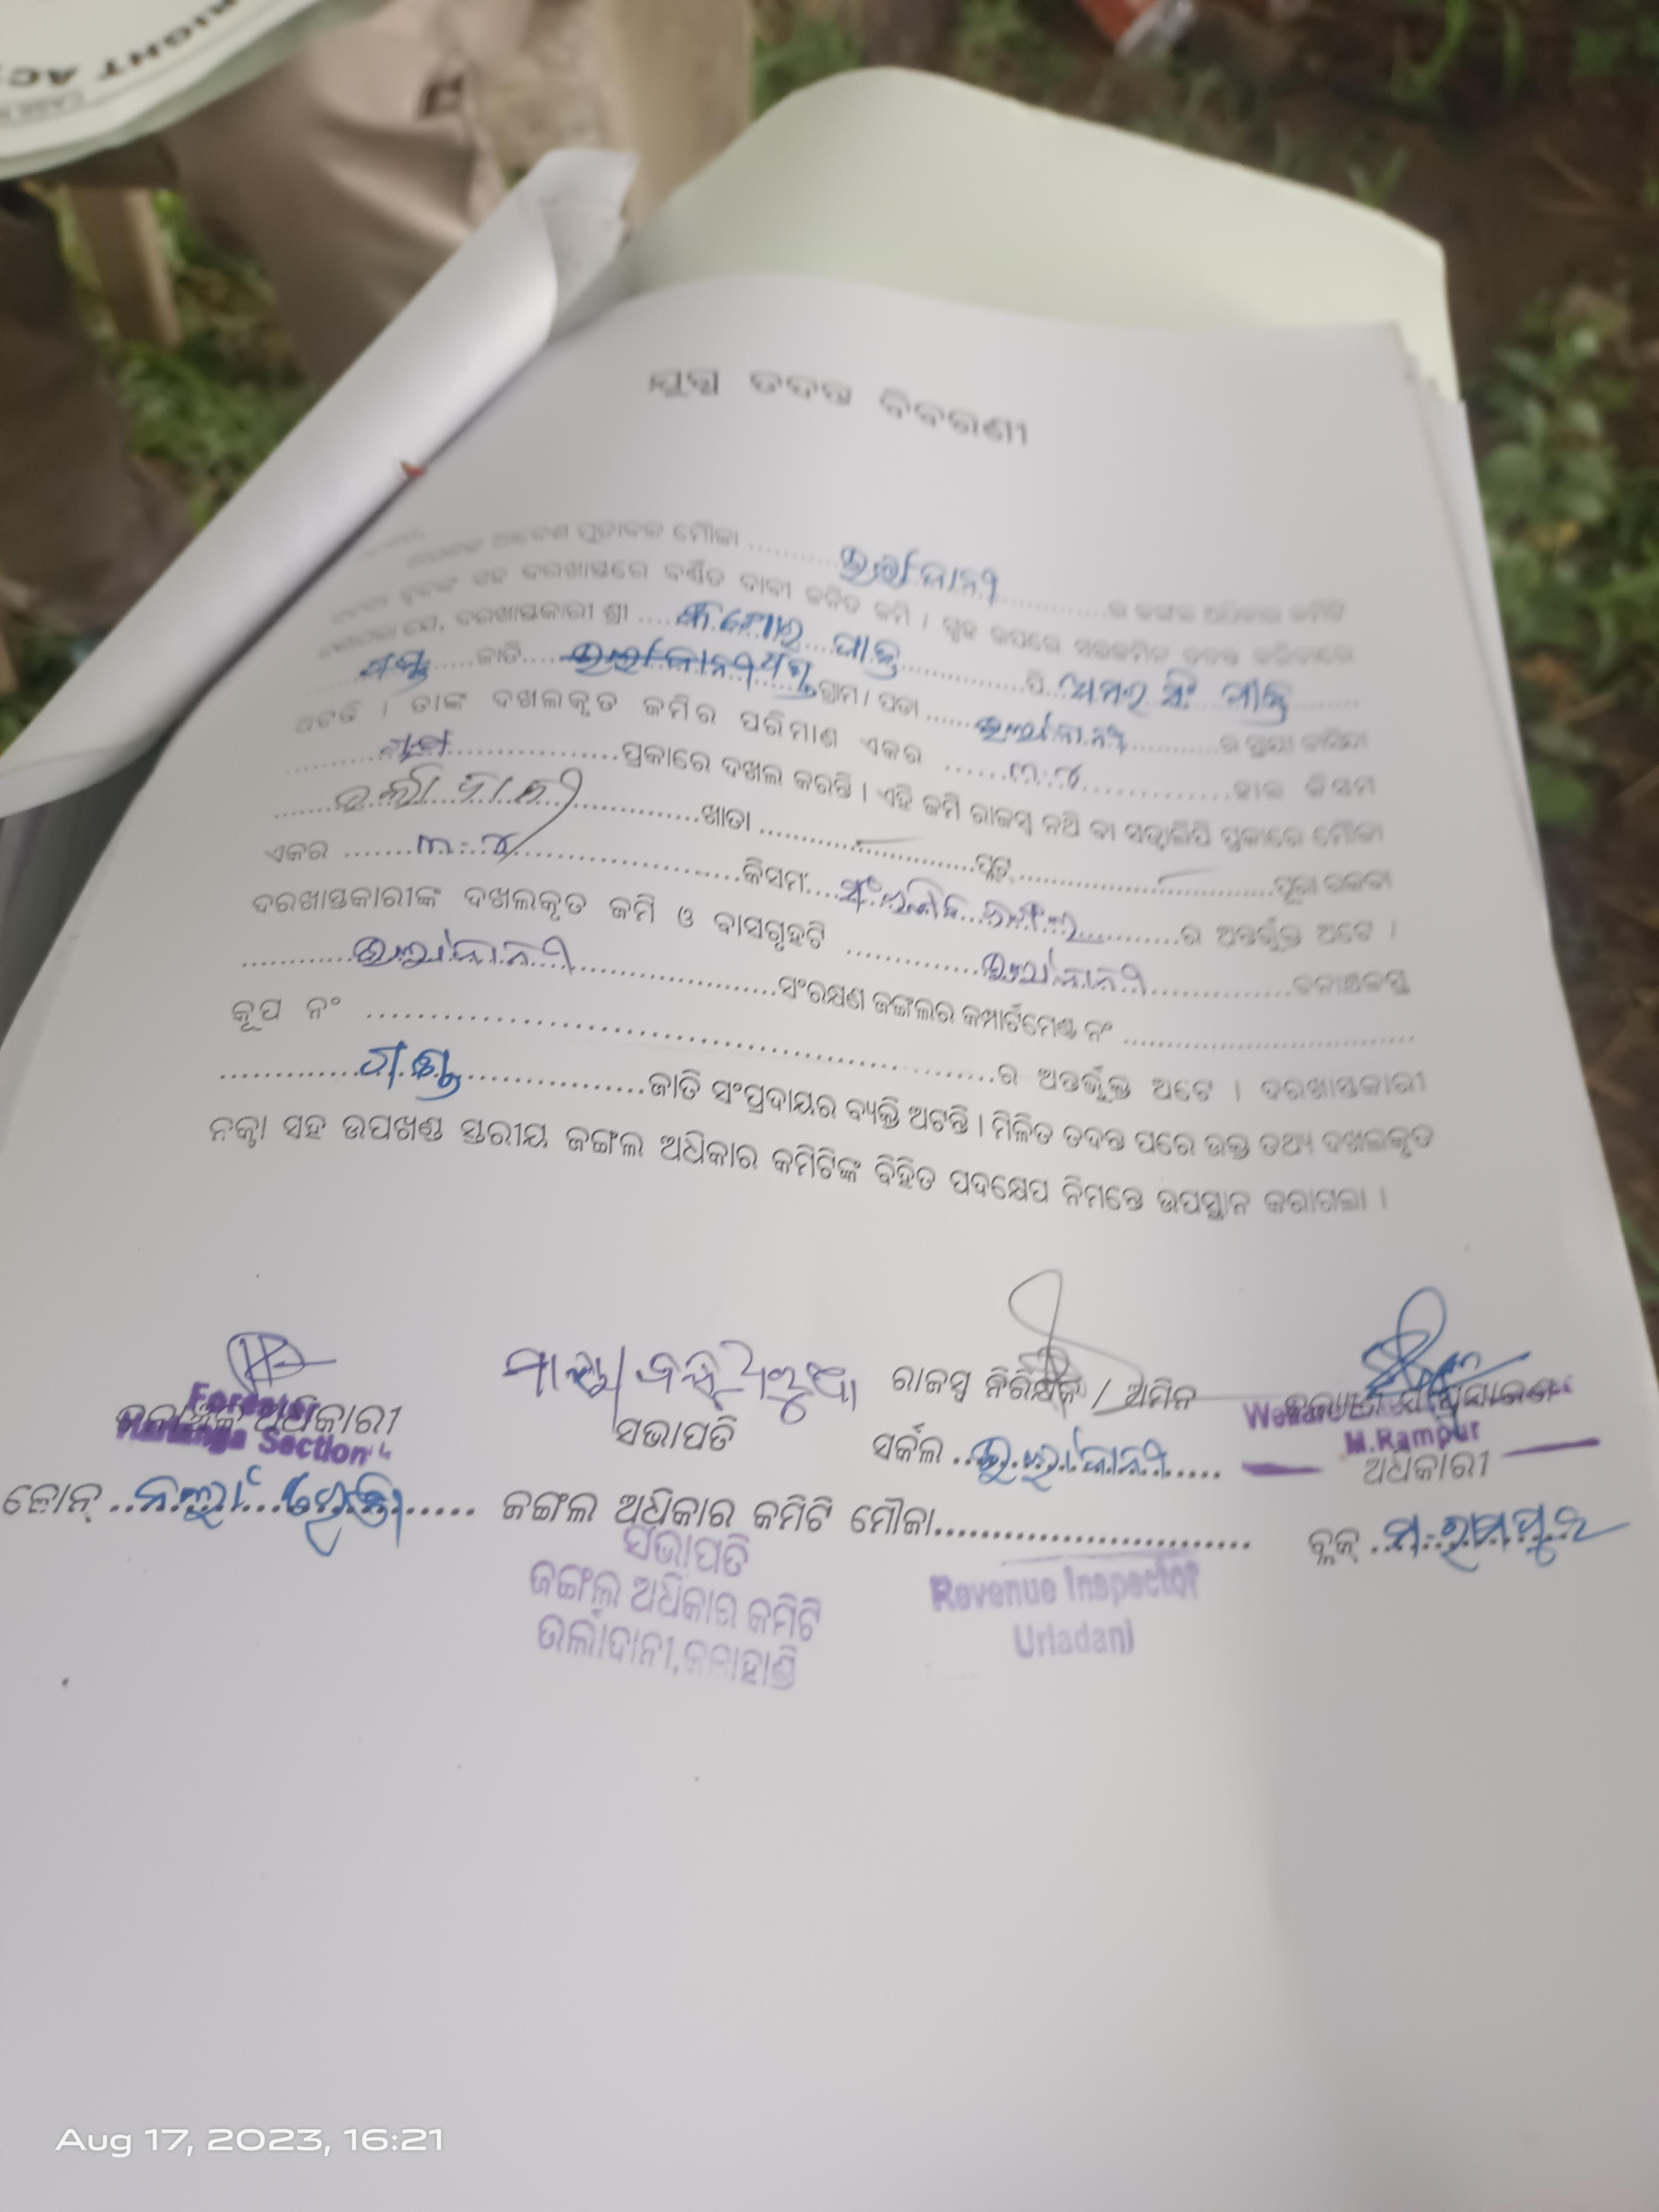 RIGHT AC
CASE
ଯୁଗ୍ମ ତଦନ୍ତ ବିବରଣୀ
ଆଦେଶ ମୁତାବକ ମୌଜା .......... ଉର୍ଲାଦାନୀ ..........ର ଜଙ୍ଗଲ ଅଧିକାର କମିଟି
ସହ ଦରଖାସ୍ତରେ ବର୍ଣ୍ଣିତ ଦାବୀ ଜନିତ ଜମି । ଗୃହ ଉପରେ ସରଜମିନ ତଦନ୍ତ କରିବାରେ
ଯେ, ଦରଖାସ୍ତକାରୀ ଶ୍ରୀ .... କିଶୋର ମାଝୀ ..........ପି... ଅମର ସିଂ ମାଝୀ
ଗଣ୍ଡ ......ଜାତି.... ଗ୍ରାମ / ପଡା ...... ଉର୍ଲାଦାନୀ ..........ର ସ୍ଥାୟୀ ବାସିନ୍ଦା
ଅଟନ୍ତି । ତାଙ୍କ ଦଖଲକୃତ ଜମିର ପରିମାଣ ଏକର ...... ୩.୪ ..........ହାଲ କିସମ
..........ପ୍ରକାରେ ଦଖଲ କରନ୍ତି । ଏହି ଜମି ରାଜସ୍ୱ ନଥି ବା ସତ୍ତ୍ୱଲିପି ପ୍ରକାରେ ମୌଜା
.......... ଉର୍ଲାଦାନୀ ..........ଖାତା ....................ପ୍ଲଟ୍ ....................ପୂରା ରକବା
ଏକର ....... ୩.୪ ....................କିସମ.... ସଂରକ୍ଷିତ ଜଙ୍ଗଲ ..........ର ଅନ୍ତର୍ଭୁକ୍ତ ଅଟେ ।
ଦରଖାସ୍ତକାରୀଙ୍କ ଦଖଲକୃତ ଜମି ଓ ବାସଗୃହଟି ............ ଉର୍ଲାଦାନୀ ............ବନାଞ୍ଚଳସ୍ଥ
............ ଉର୍ଲାଦାନୀ ....................ସଂରକ୍ଷଣ ଜଙ୍ଗଲର କମ୍ପାର୍ଟମେଣ୍ଟ ନଂ ..............................
କୂପ ନଂ ............................................................ର ଅନ୍ତର୍ଭୁକ୍ତ ଅଟେ । ଦରଖାସ୍ତକାରୀ
............ ଗଣ୍ଡ ................ଜାତି ସଂପ୍ରଦାୟର ବ୍ୟକ୍ତି ଅଟନ୍ତି । ମିଳିତ ତଦନ୍ତ ପରେ ଉକ୍ତ ତଥ୍ୟ ଦଖଲକୃତ
ନକ୍ସା ସହ ଉପଖଣ୍ଡ ସ୍ତରୀୟ ଜଙ୍ଗଲ ଅଧିକାର କମିଟିଙ୍କ ବିହିତ ପଦକ୍ଷେପ ନିମନ୍ତେ ଉପସ୍ଥାନ କରାଗଲା ।
Forester
ବନାଞ୍ଚଳ ଅଧିକାରୀ
Section
ସଭାପତି
ରାଜସ୍ୱ ନିରିକ୍ଷକ / ଅମିନ
ସର୍କଲ .. ଉର୍ଲାଦାନୀ ......
M.Rampur
ଅଧିକାରୀ
ଜୋନ୍ .......................... ଜଙ୍ଗଲ ଅଧିକାର କମିଟି ମୌଜା..............................
ବ୍ଲକ୍ .. ମ.ରାମପୁର
ସଭାପତି
ଜଙ୍ଗଲ ଅଧିକାର କମିଟି
ଉର୍ଲାଦାନୀ,କଳାହାଣ୍ଡି
Revenue Inspector
Urladani
Aug 17, 2023, 16:21